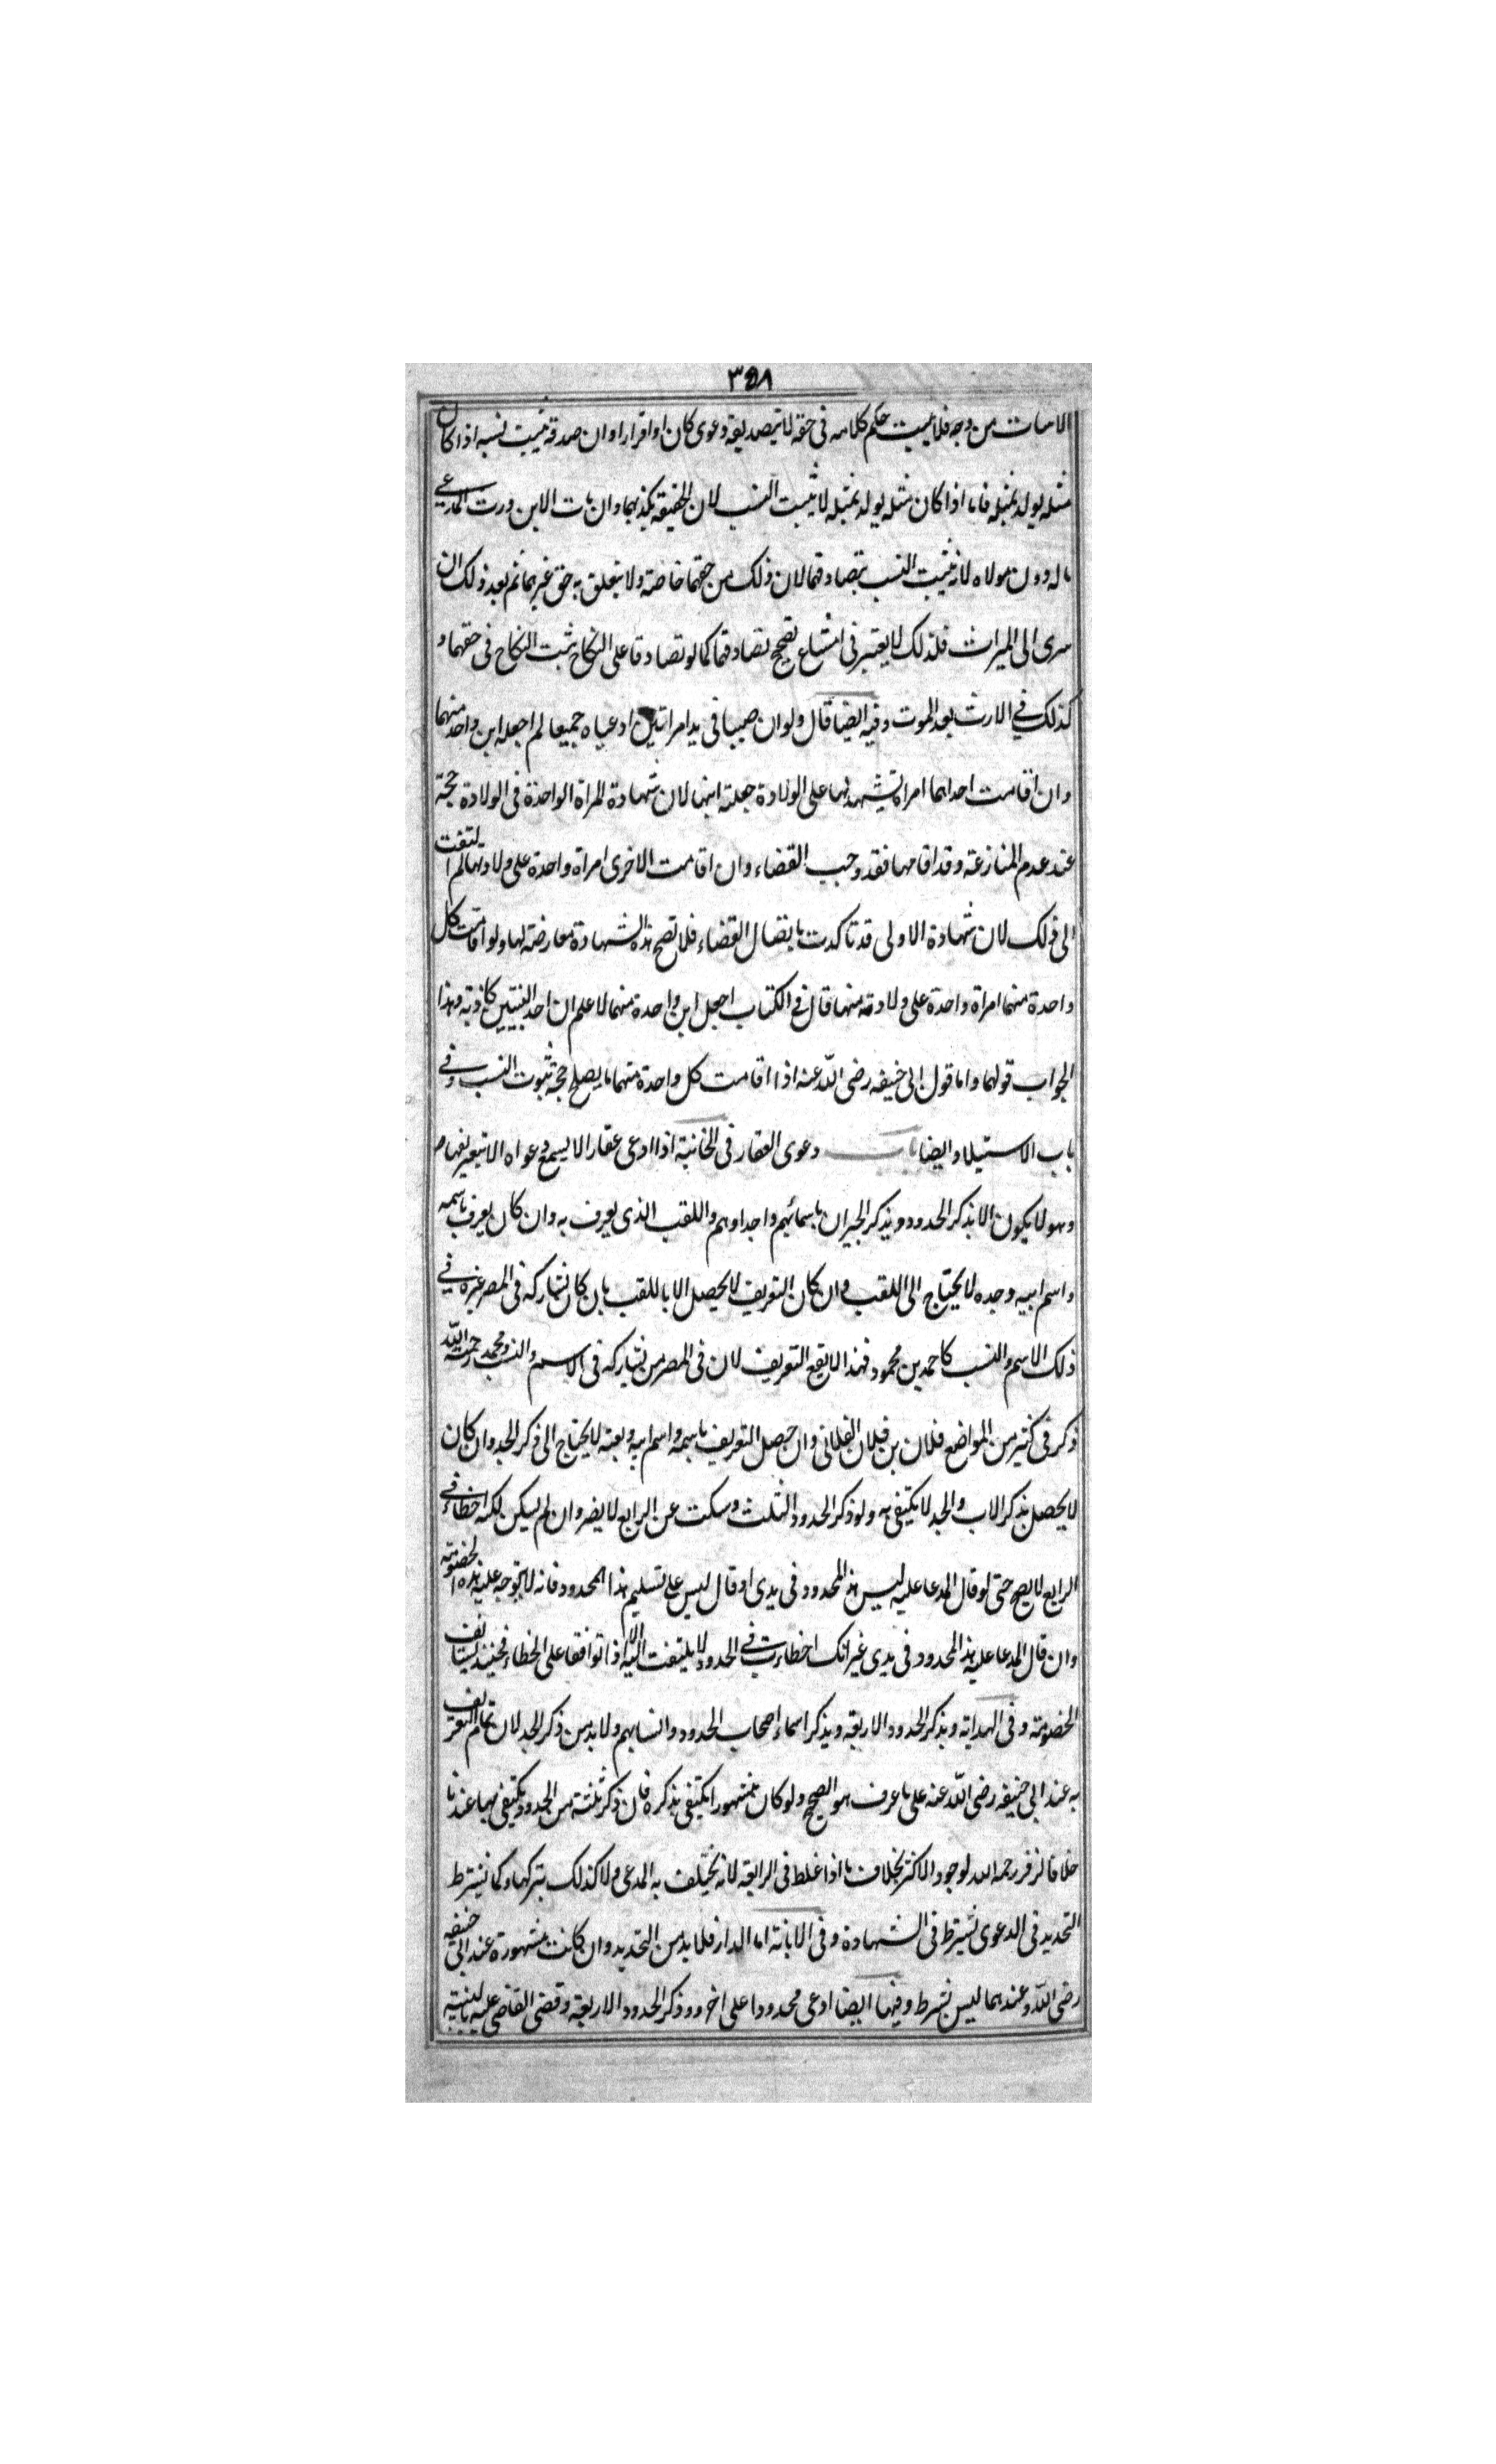 ٣٥٨
الاسات من وجه فلا يثبت حكم كلامه فى حقه لا بتصديقه دعوى كان او اقرارا وان صدقه يثبت نسبه اذا كان
مثله يولد بمثله فاما اذا كان مثله يولد بمثله لا يثبت النسب لان الحقيقة يكذبهما وان مات الابن ورث المدعى
ماله دون مولاه لانه يثبت النسب بتصادقهما لان ذلك من حقهما خاصة ولا يتعلق به حق غيرهما ثم بعد ذلك ان
سرى الى الميراث فلذلك لا يعتبر فى امتناع تصحيح تصادقهما كما لو تصادقا على النكاح ثبت النكاح فى حقهما و
كذلك في الارث بعد الموت وفيه ايضا قال ولو ان صبيا فى يد امراتين ادعياه جميعا لم اجعله ابن واحد منهما
وان اقامت احدٰهما امراة يشهد لها على الولادة جعلته ابنها لان شهادة المراة الواحدة فى الولادة حجة
عند عدم المنازعة وقد اقامها فقد وجب القضاء وان اقامت الاخرى امراة واحدة على ولادتها لم التفت
الى ذلك لان شهادة الاولى قد تاكدت باتصال القضاء فلا تصح هذه الشهادة معارضة لها ولو اقامت كل
واحدة منهما امراة واحدة على ولادته منها قال فى الكتاب اجعل ابن واحدة منهما لا علم ان احد البينتين كاذبة وهذا
الجواب قولهما واما قول ابى حنيفه رضى الله عنه اذا اقامت كل واحدة منهما ما يصلح حجة ثبوت النسب وفي
باب الاستيلا وايضا باب دعوى العقار فى الخانية اذا ادعى عقارا لا يسمع دعواه الا بتعريفها ص
وهو لا يكون الا بذكر الحدود ويذكر الجيران باسمائهم واجدادهم واللقب الذى يعرف به وان كان يعرف باسمه
واسم ابيه وجده لا يحتاج الى اللقب وان كان التعريف لا يحصل الا باللقب بان كان يشاركه فى المصر غيره في
ذلك الاسم والنسب كاحمد بن محمود فهذا لا يقع التعريف لان فى المصر من يشاركه فى الاسم والنسب ومحمد رحمة الله
ذكر فى كثير من المواضع فلان بن فلان الفلانى وان حصل التعريف باسمه واسم ابيه ولقبه لا يحتاج الى ذكر الجد وان كان
لا يحصل بذكر الاب والجد لا يكتفى به ولو ذكر الحدود الثلث وسكت عن الرابع لا يضر وان لم يسكن لكنه اخطاء في
الرابع لا يصح حتى لو قال المدعا عليه ليس هذا المحدود فى يدى او قال ليس على تسليم هذا المحدود فانه لا يتوجه عليه هذه الخصومته
وان قال المدعا عليه هذا المحدود فى يدى غير انك اخطاءت في الحدود لا يلتفت اليه الا اذا توافقا على الخطاء فحينئذ يستانف
الخصومته وفى الهداية ويذكر الحدود الاربعة ويذكر اسماء اصحاب الحدود وانسابهم ولا بد من ذكر الجد لان تمام التعريف
به عند ابى حنيفه رضى الله عنه على ما عرف هو الصحيح ولو كان مشهورا يكتفى بذكره فان ذكر ثلثة من الحدود يكتفى بها عندنا
خلافا لزفر رحمه الله لوجود الاكثر بخلاف ما اذا غلط فى الرابعة لانه يختلف به المدعى ولا كذلك بتركها وكما يشترط
التحديد فى الدعوى يشترط فى الشهادة وفى الابانة اما الدار فلا بد من التحديد وان كانت مشهورة عند ابى حنيفه
رضى الله وعندهما ليس بشرط وفيها ايضا ادعى محدودا على اخر وذكر الحدود الاربعة وقضى القاضى عليه بالبينة